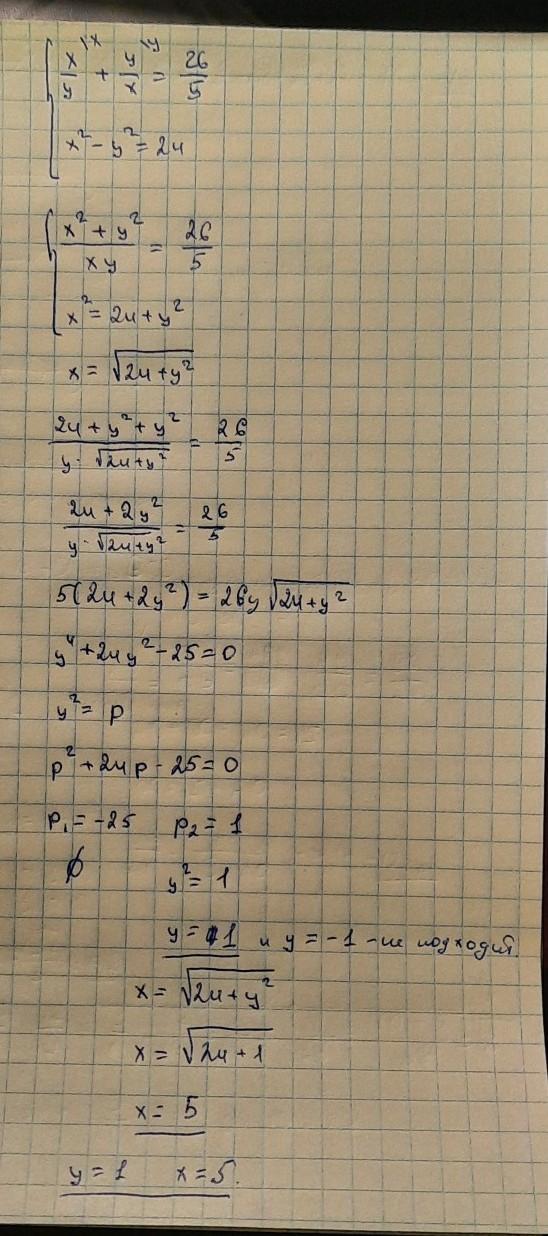 x/y \x + y/x \y = 26/5
x² - y² = 24
(x² + y²)/(xy) = 26/5
x² = 24 + y²
x = √(24 + y²)
(24 + y² + y²)/(y · √(24 + y²)) = 26/5
(24 + 2y²)/(y · √(24 + y²)) = 26/5
5(24 + 2y²) = 26y √(24 + y²)
y⁴ + 24y² - 25 = 0
y² = p
p² + 24p - 25 = 0
p₁ = -25 p₂ = 1
∅
y² = 1
y = 1 и y = -1 - не подходит.
x = √(24 + y²)
x = √(24 + 1)
x = 5
y = 1 x = 5.